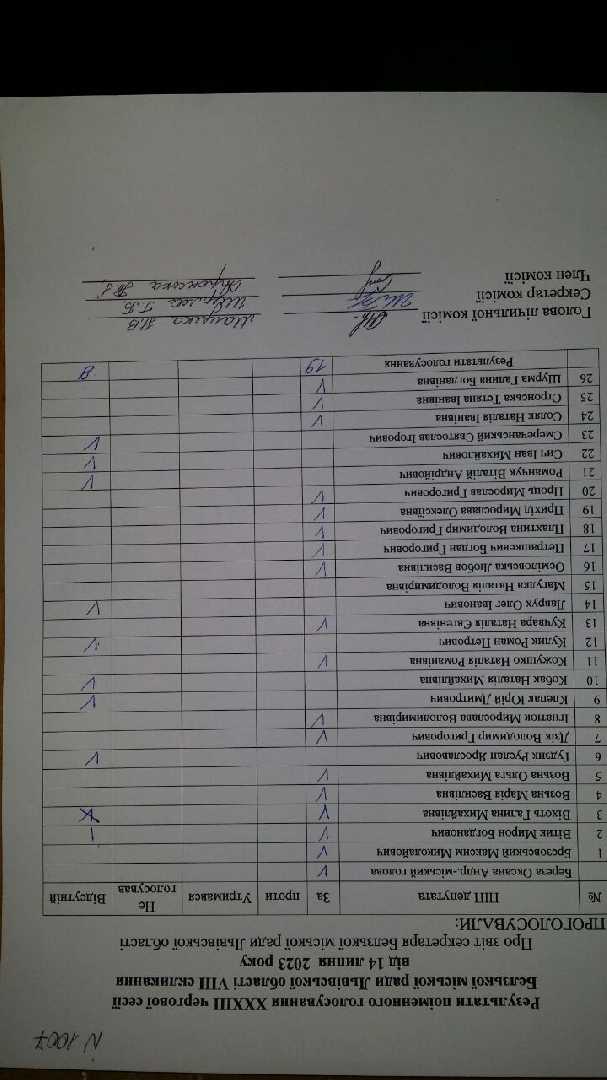 N 1007
Результати поіменного голосування XXXIII чергової сесії
Белзької міської ради Львівської області VIII скликання
від 14 липня 2023 року
Про звіт секретаря Белзької міської ради Львівської області
ПРОГОЛОСУВАЛИ:
№ ПІП депутата За проти Утримався Не голосував Відсутній
Береза Оксана Андр.-міський голова V
1 Брезовський Максим Миколайович V
2 Вітик Мирон Богданович V
3 Віхоть Галина Михайлівна V
4 Возьна Марія Василівна V
5 Возьна Ольга Михайлівна V
6 Гудзик Руслан Ярославович V
7 Дяк Володимир Григорович V
8 Ігнатюк Мирослава Володимирівна V
9 Клепак Юрій Дмитрович V
10 Кобак Наталія Михайлівна V
11 Кожушко Наталія Романівна V
12 Кулик Роман Петрович V
13 Кучвара Наталія Євгеніївна V
14 Лаврук Олег Іванович V
15 Магулка Наталія Володимирівна
16 Осмiловська Любов Василівна V
17 Петришенич Богдан Григорович V
18 Плахтина Володимир Григорович V
19 Прихід Мирослава Олексіївна V
20 Проць Мирослав Григорович V
21 Романчук Віталій Андрійович V
22 Сич Іван Михайлович V
23 Смеречанський Святослав Ігорович V
24 Соляк Наталія Іванівна V
25 Стронська Тетяна Іванівна V
26 Шурма Галина Богданівна V
Результати голосування 19 8
Голова лічильної комісії
Секретар комісії
Член комісії